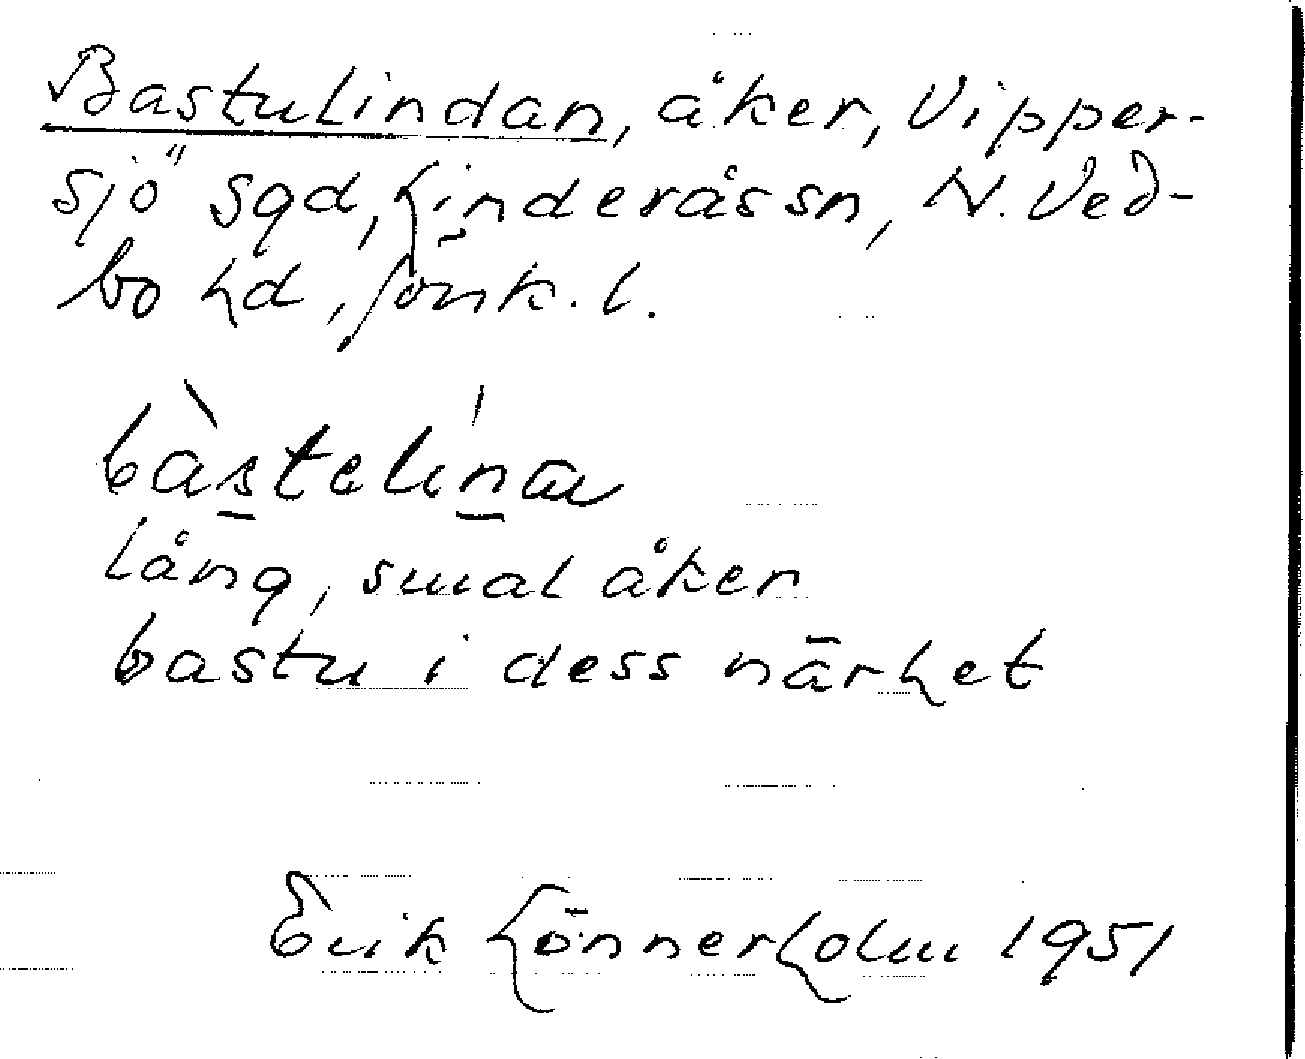 Bastulindan, åker, Vipper-
sjö sgd, Linderås sn, N. Ved-
bo hd, Jönk. l.
lång, smal åker
bastu i dess närhet
Erik Lönnerholm 1951